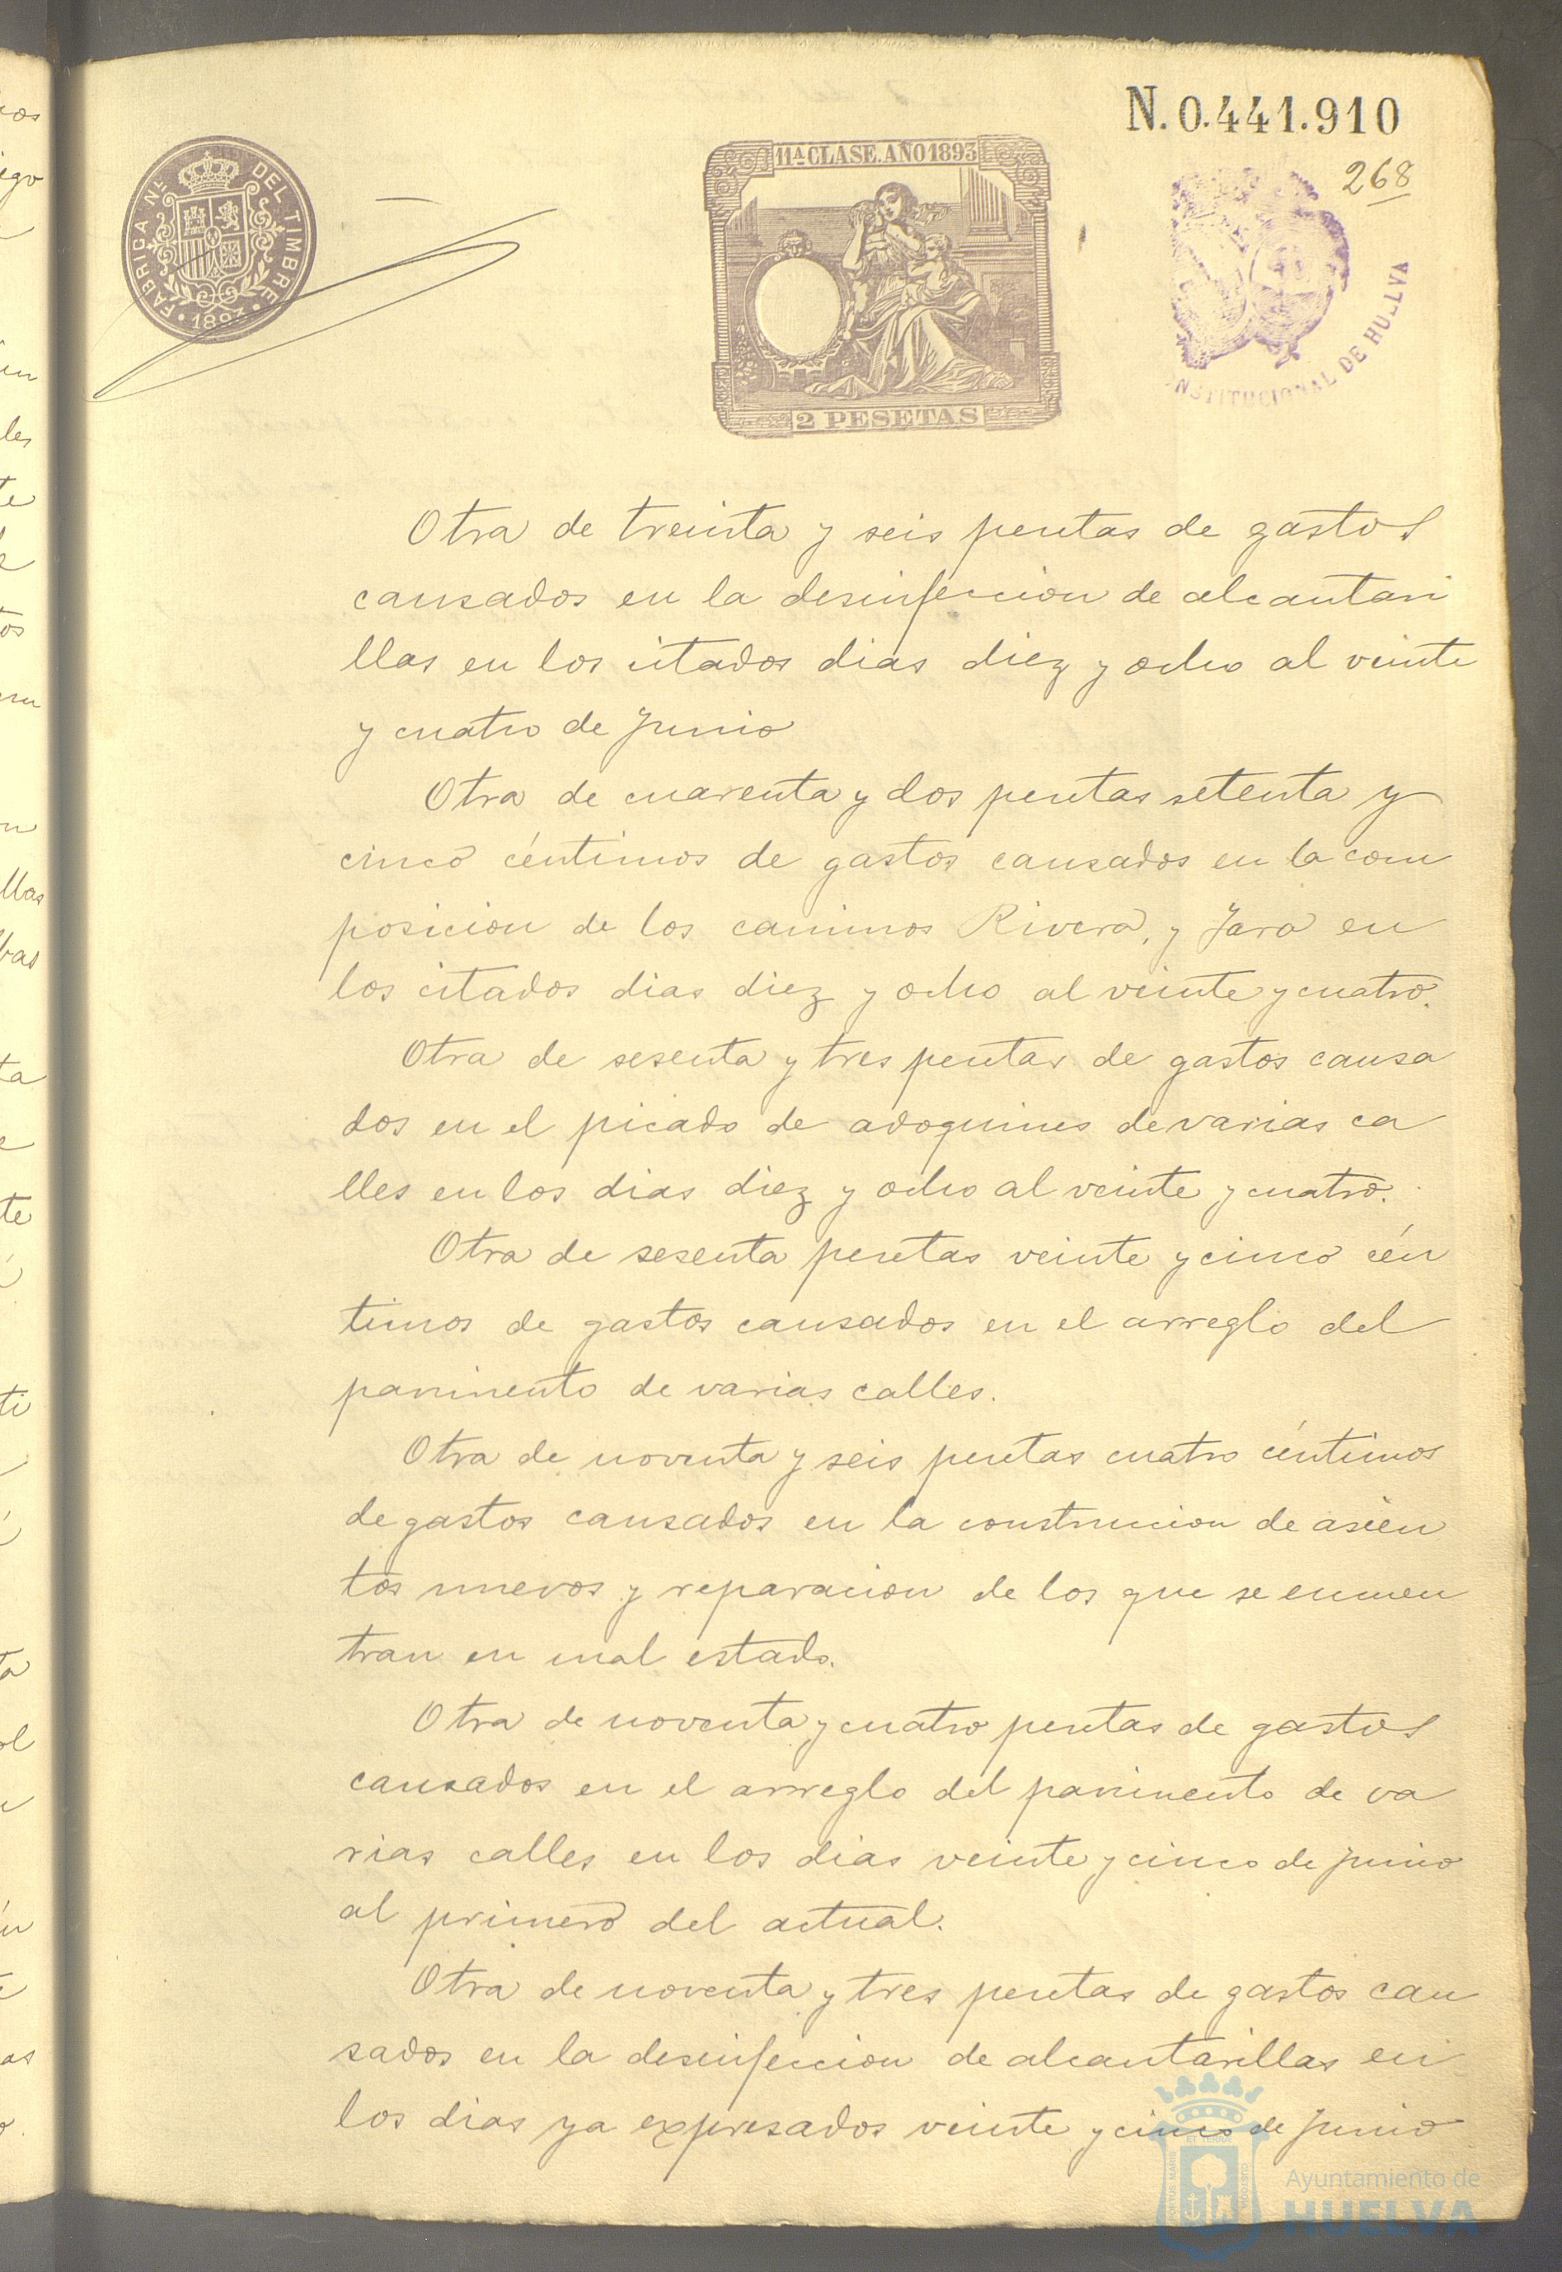 N. 0.441.910
268
FABRICA NL. DEL TIMBRE
1893
11ª CLASE. AÑO 1893
2 PESETAS
NSTITUCIONAL DE HUELVA
Otra de treinta y seis pesetas de gastos
causados en la desinfeccion de alcantari
llas en los citados dias diez y ocho al veinte
y cuatro de Junio
Otra de cuarenta y dos pesetas setenta y
cinco céntimos de gastos causados en la com
posicion de los caminos Rivera, y Jara en
los citados dias diez y ocho al veinte y cuatro.
Otra de sesenta y tres pesetas de gastos causa
dos en el picado de adoquines de varias ca
lles en los dias diez y ocho al veinte y cuatro.
Otra de sesenta pesetas veinte y cinco cén
timos de gastos causados en el arreglo del
pavimento de varias calles.
Otra de noventa y seis pesetas cuatro céntimos
de gastos causados en la construccion de asien
tos nuevos y reparacion de los que se encuen
tran en mal estado.
Otra de noventa y cuatro pesetas de gastos
causados en el arreglo del pavimento de va
rias calles en los dias veinte y cinco de Junio
al primero del actual.
Otra de noventa y tres pesetas de gastos cau
sados en la desinfeccion de alcantarillas en
los dias ya expresados veinte y cinco de Junio
Ayuntamiento de
HUELVA